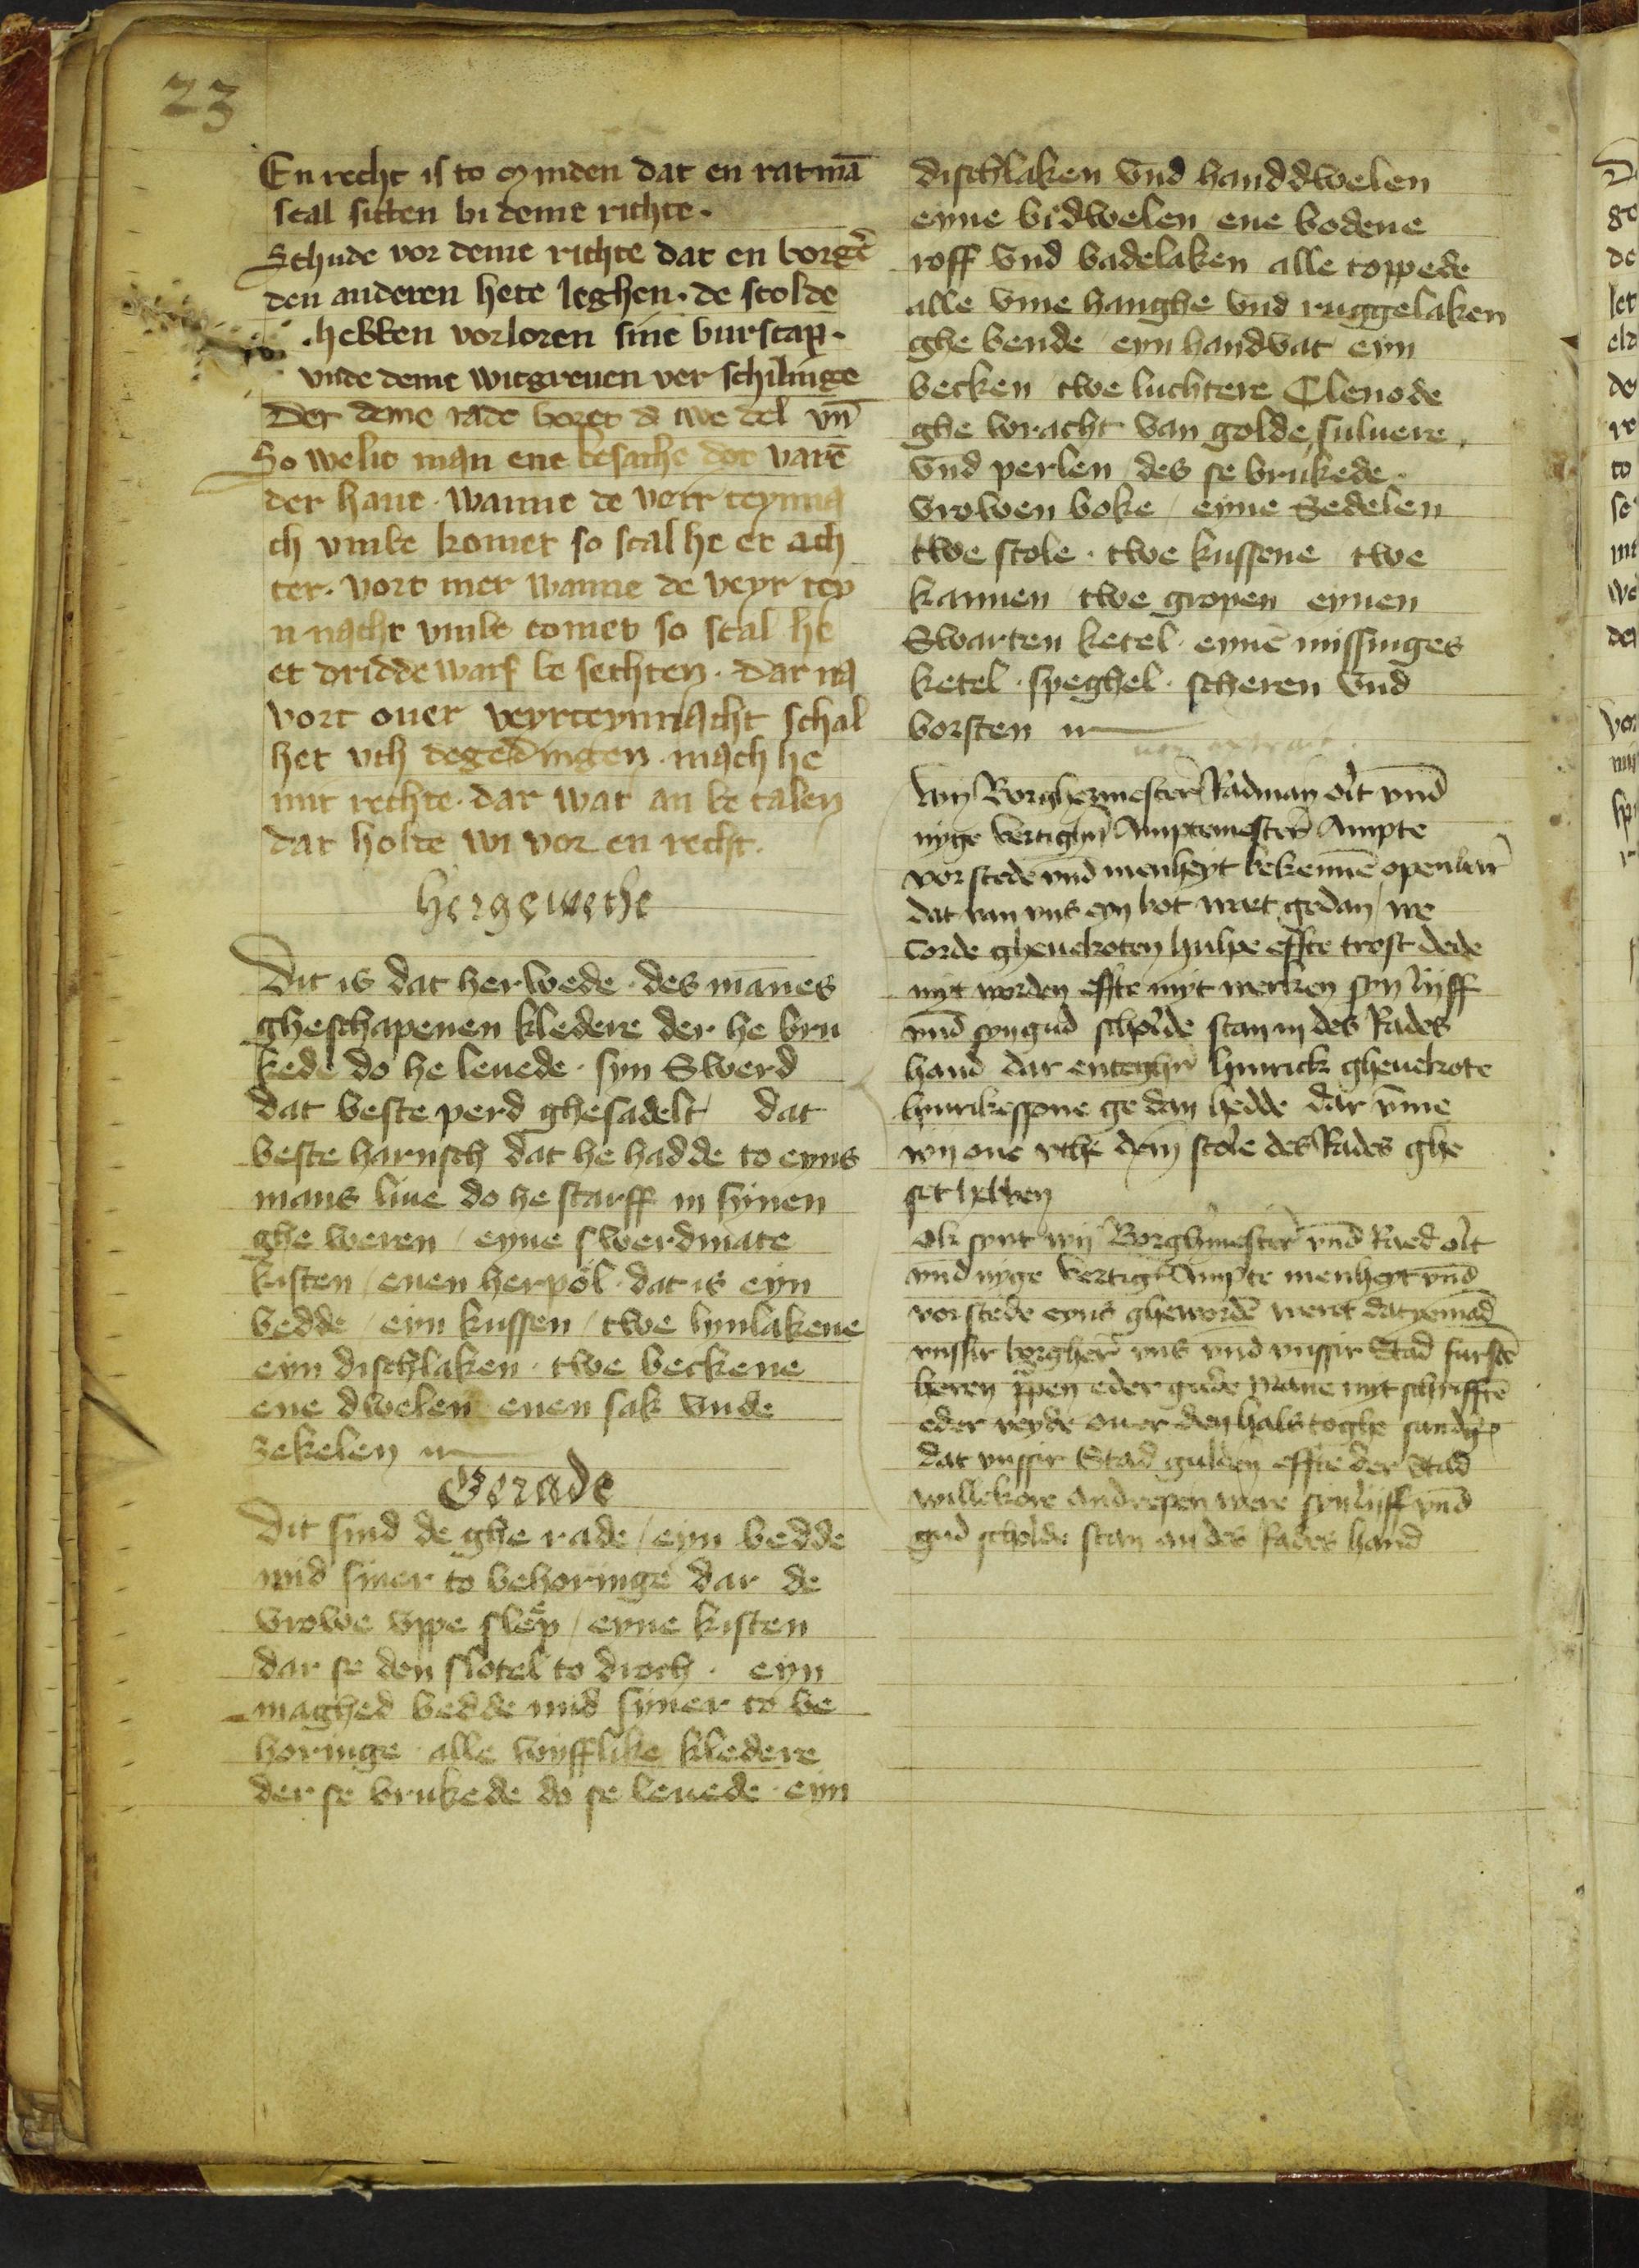 23
En recht is to mynden dat en ratmā
scal sitten bi deme richte.
Schude vor deme richte dat en borg̃
den anderen hete leghen. de scolde
.hebben vorloren sine burscap.
vnde deme wicgreuen ver schillinge
Der deme rade boret d twe del vn̄
So welic man ene besathe dot varē
der haue. wanne de verr teynna
ch vmbe komet so scal he et ach
ter. vort mer wanne de veyr tey
n nacht vmbe comet so scal he
et dridde warf be sechten. dar na
vort ouer veyrteynnacht schal
het vth degedingen. mach he
mit rechte. dar wat an be talen
dat holde wi vor en recht.
Hergewethe
Dit is dat herwede. des mānes
gheschapenen kledere der he bru
kede do he leuede. syn Swerd
dat beste perd ghesadelt / dat
beste harnsch dat he hadde to eyns
mans liue do he starff in synen
ghe weren / eyne swerdmate
kisten / enen herpöl. dat is eyn
bedde / eyn kussen / twe lynlakene
eyn dischlaken. twe beckene
ene dwelen enen sak vnde
zekelen
Gerade
Dit sind de ghe rade / eyn bedde
mid siner to behoringe dar de
vrowe vppe slep / eyne kisten
dar se den slotel to droch. eyn
maghed bedde mid syner to be
horinge. alle wyfflike kledere
der se brukede do se leuede. eyn
dischlaken vnd handdwelen
eyne bidwelen ene bodene
roff vnd badelaken alle toppede
alle vme hanghe vnd ruggelaken
ghe bende / eyn handvat eyn
becken / twe luchtere Clenode
ghe wracht van golde suluere.
vnd perlen des se brukede.
vrowen boke / eyne Sedelen
twe stole. twe kussene twe
kannen twe gropen eynen
Swarten ketel. eynē missinges
ketel. speghel. scheren vnd
borsten
Wij Borghermester Radman olt vnd
nyge vertigh Amptmester Ampte
vorstede vnd menheyt bekennē openbar
dat van vns eyn bot wart gedan / we
Corde gheuekoten hulpe effte trost dede
myt worden effte myt werken syn lyff
vnd syn gud scholde stan in des Rades
hand dar enteghn hinrick gheuekote
hinrikessone ge dan hedde dar vme
wy one vthe dem stole des Rades ghe
set hebben
Ok synt wij Borghmester vnd Raed olt
vnd nyge vertigh Ampte menheyt vnd
vorstede eyns ghewordē wert dat yemād
vnssir borgher vns vnd vnssir Stad furstē
heren eder gude manne myt schrifftē
eder veyde ouer den hals toghe
dat vnssir Stad gulden effte der Stad
willekore andrepen were syn lyff vnd
gud scholde stan an des Rades hand